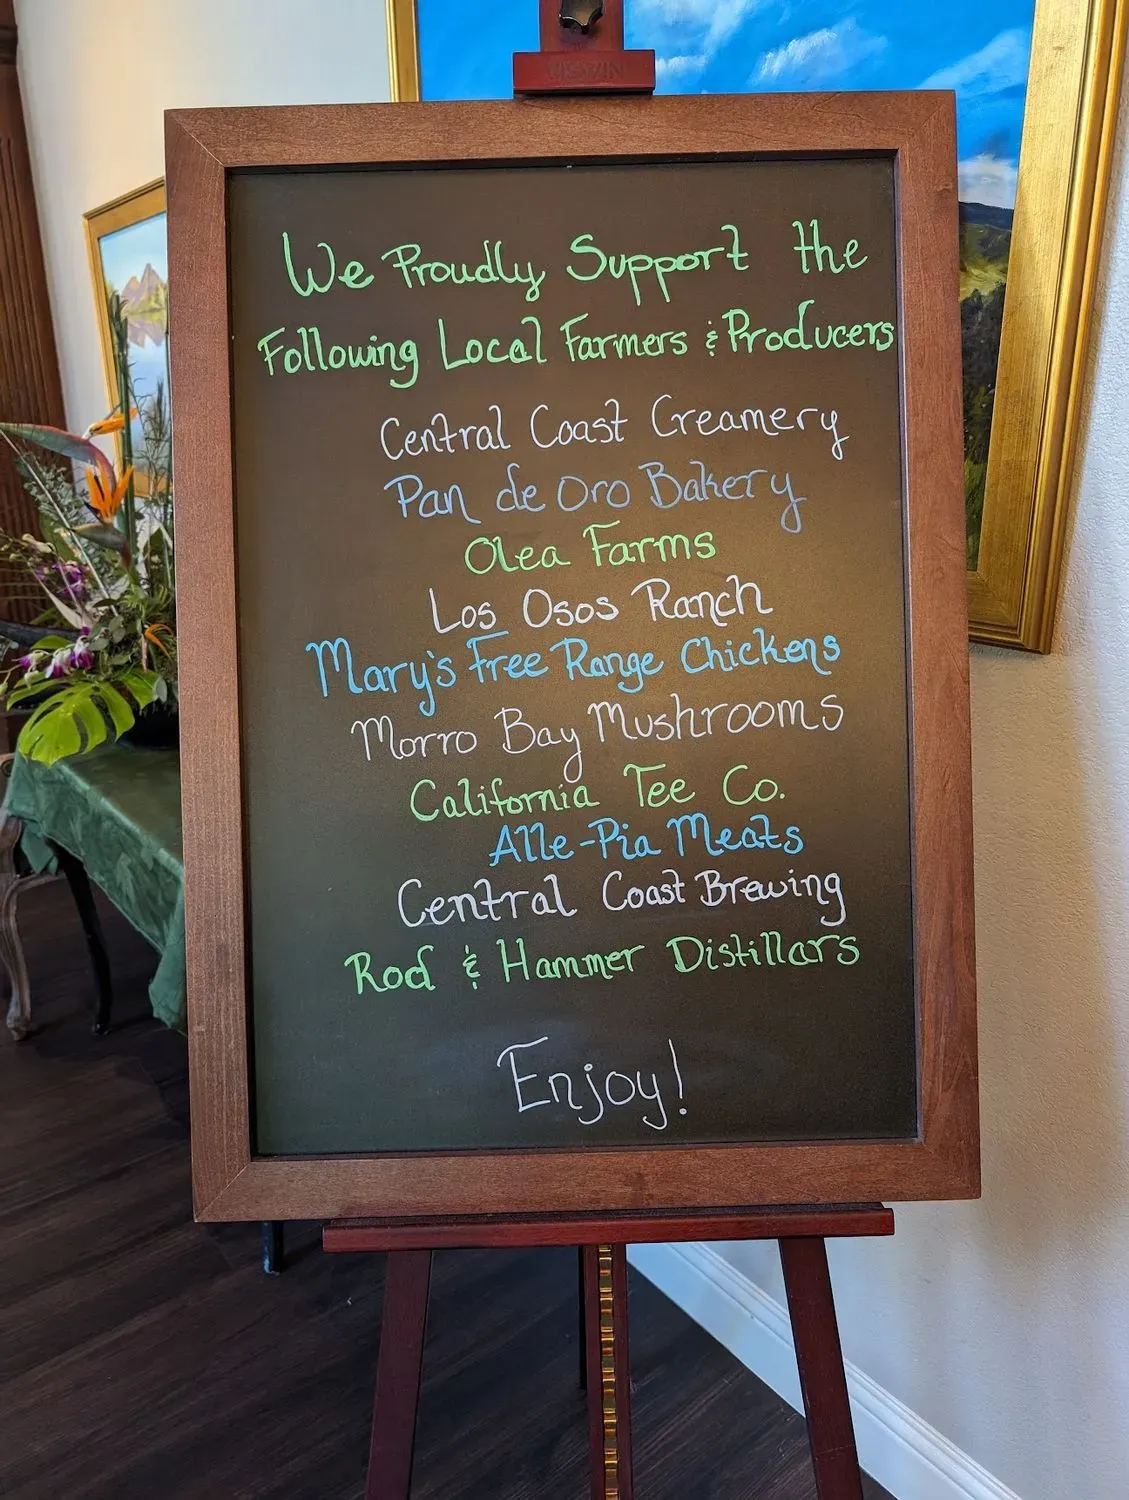 VISWIN
We Proudly Support the
Following Local Farmers & Producers
Central Coast Creamery
Pan de Oro Bakery
Olea Farms
Los Osos Ranch
Mary's Free Range Chickens
Morro Bay Mushrooms
California Tee Co.
Alle-Pia Meats
Central Coast Brewing
Rod & Hammer Distillars
Enjoy!